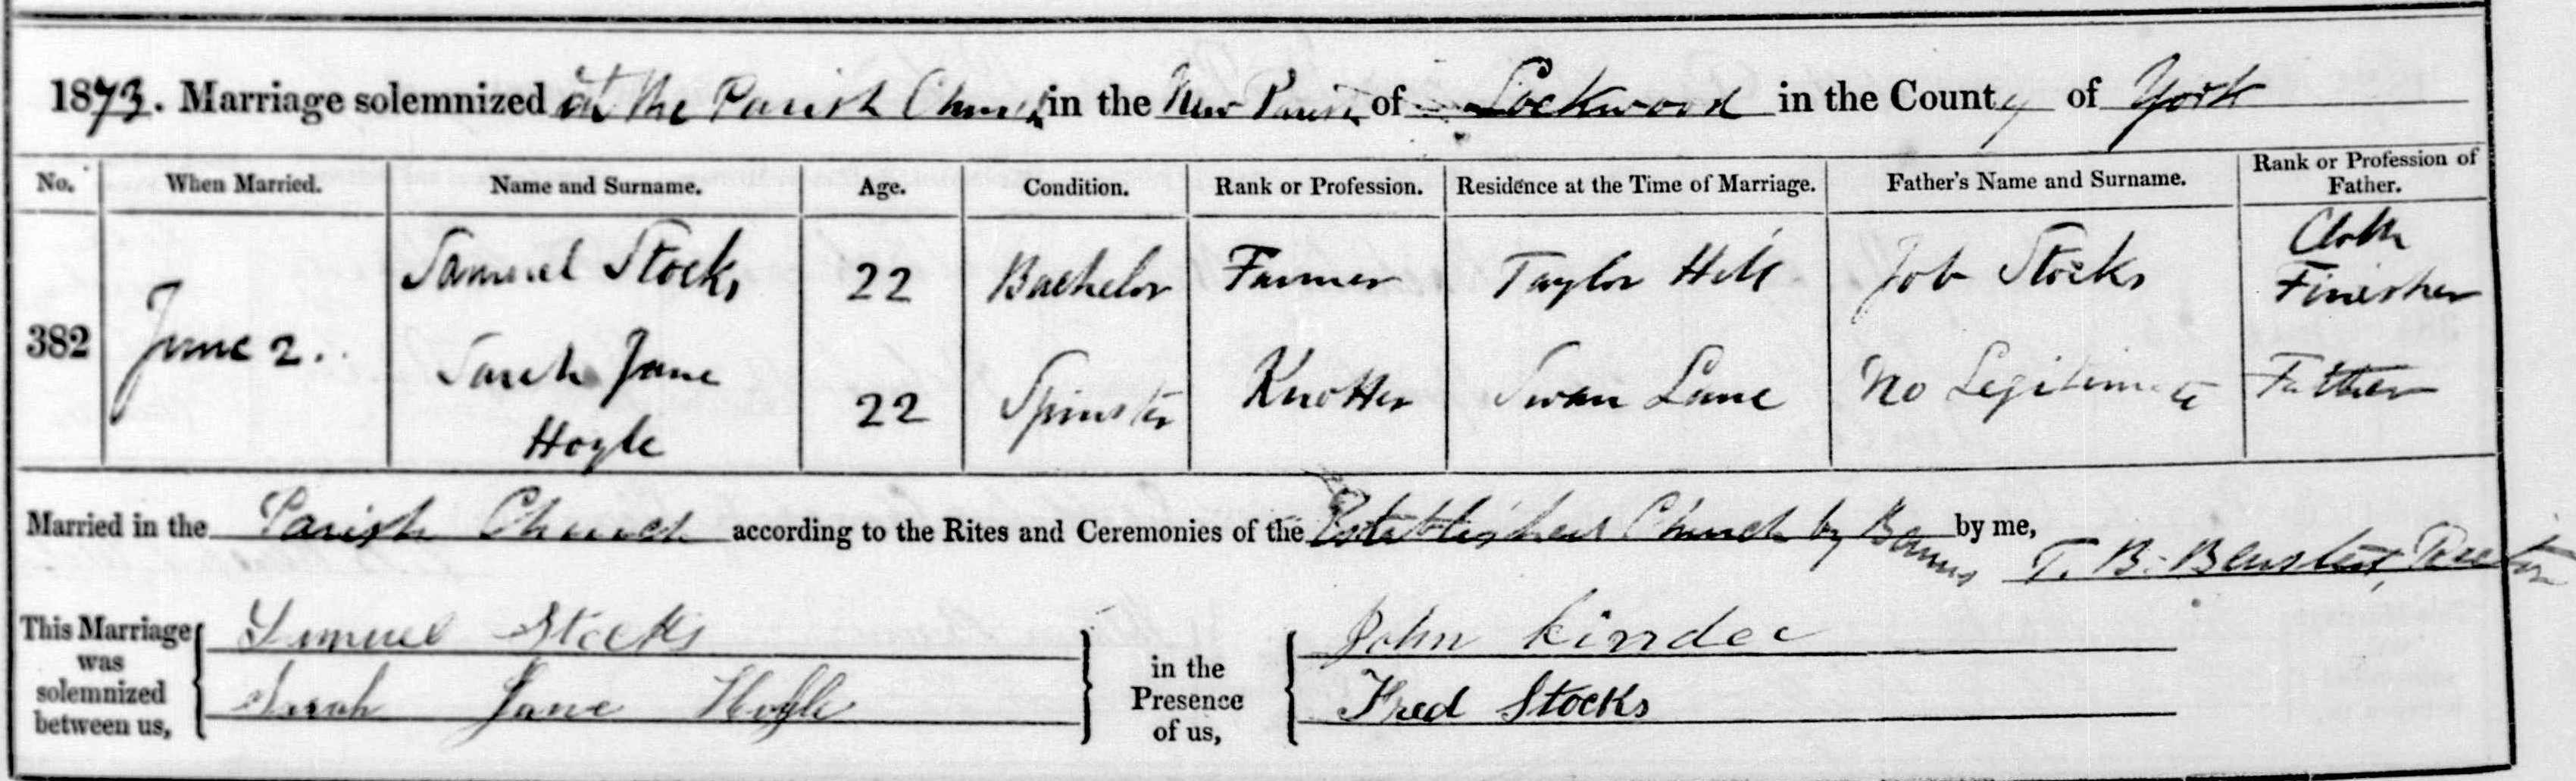 1873. Marriage solemnized at the Parish Church in the New Parish of Lockwood in the County of York
No. When Married. Name and Surname. Age. Condition. Rank or Profession. Residence at the Time of Marriage. Father's Name and Surname. Rank or Profession of Father.
382 June 2. Samuel Stocks 22 Bachelor Farmer Taylor Hill Job Stocks Cloth Finisher
Sarah Jane Hoyle 22 Spinster Knotter Swan Lane No Legitimate Father
Married in the Parish Church according to the Rites and Ceremonies of the Established Church by Banns by me,
T. B. Bensted,
This Marriage was solemnized between us, Samuel Stocks in the Presence of us, John Kinder
Sarah Jane Hoyle Fred Stocks